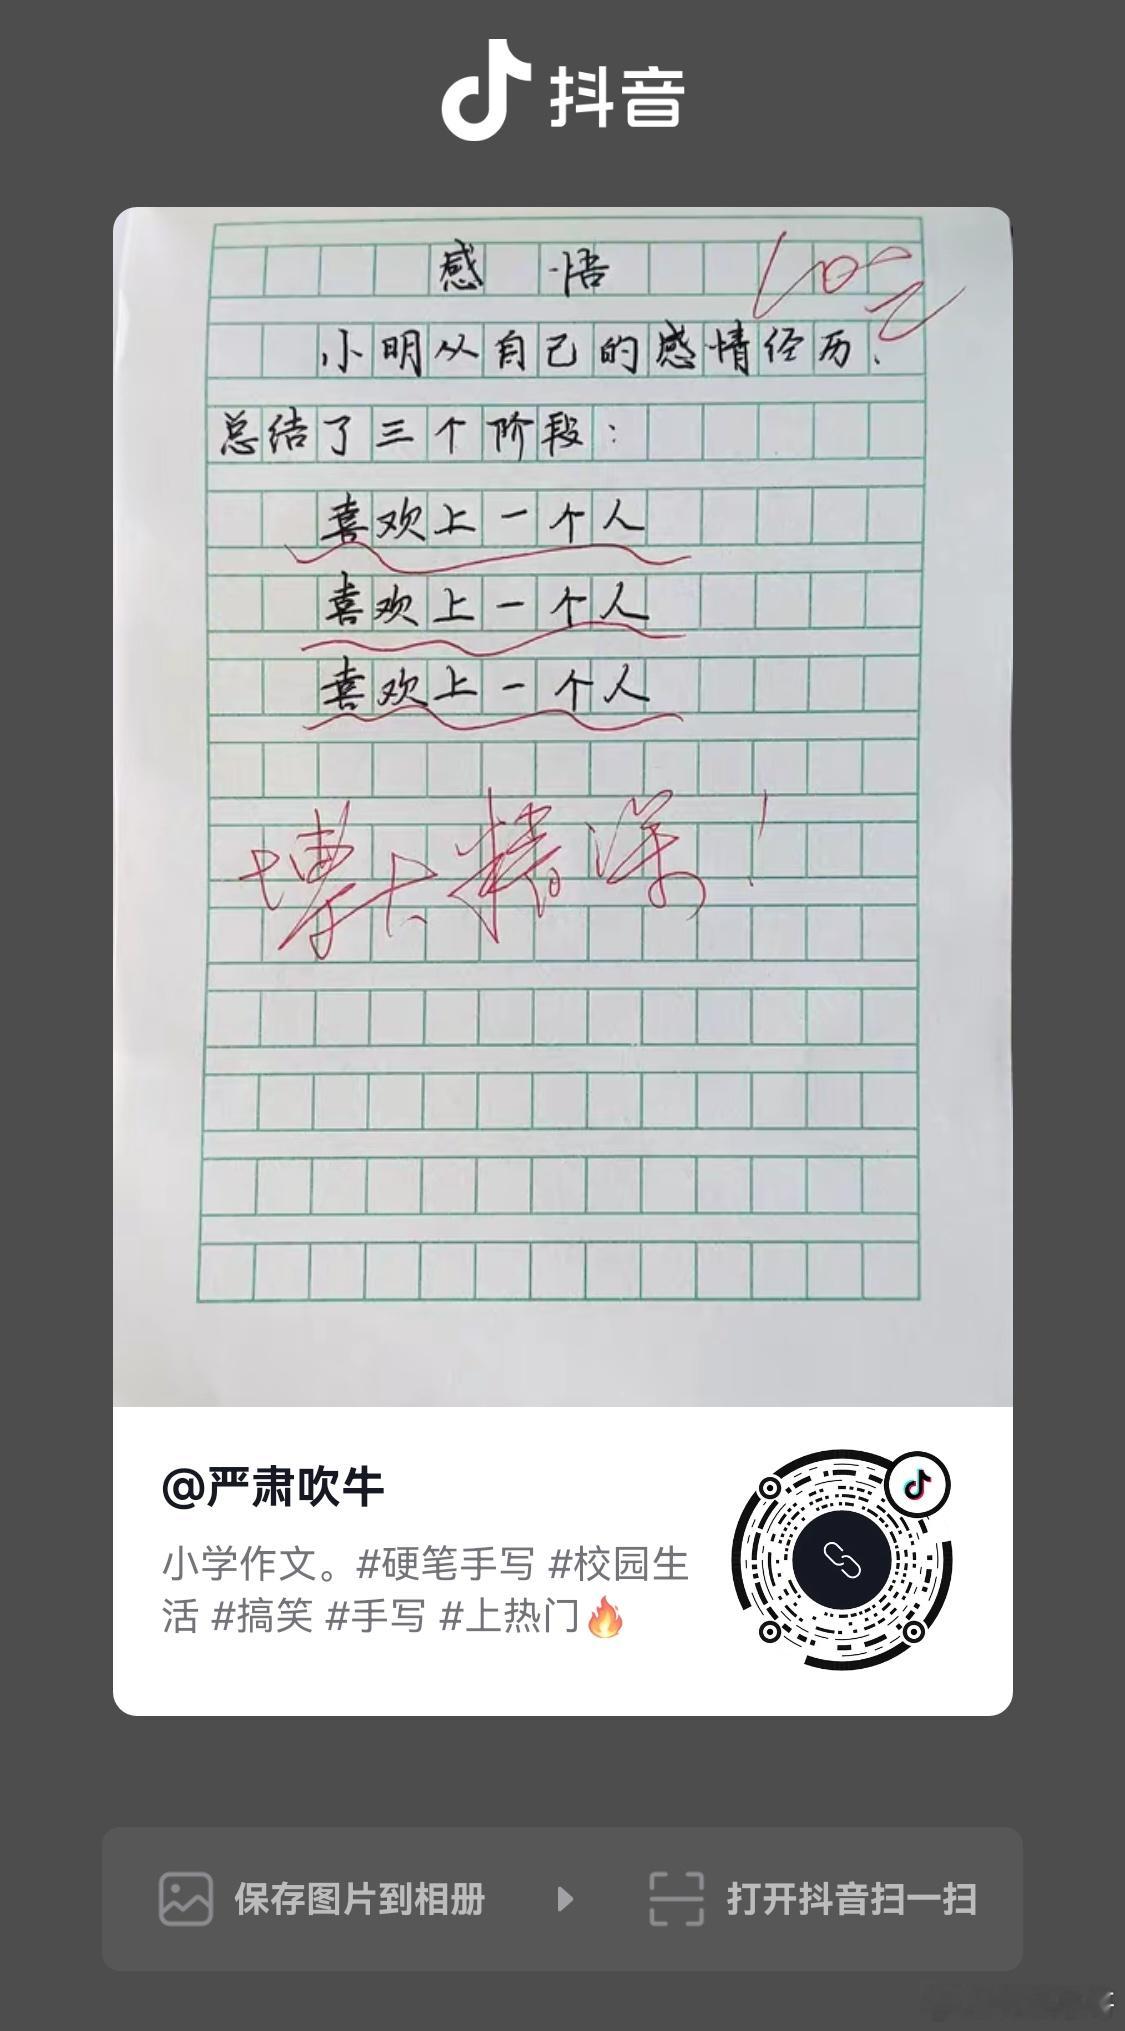 抖音
感悟
100
小明从自己的感情经历,
总结了三个阶段:
喜欢上一个人
喜欢上一个人
喜欢上一个人
博大精深!
@严肃吹牛
小学作文。#硬笔手写 #校园生
活 #搞笑 #手写 #上热门🔥
保存图片到相册
打开抖音扫一扫